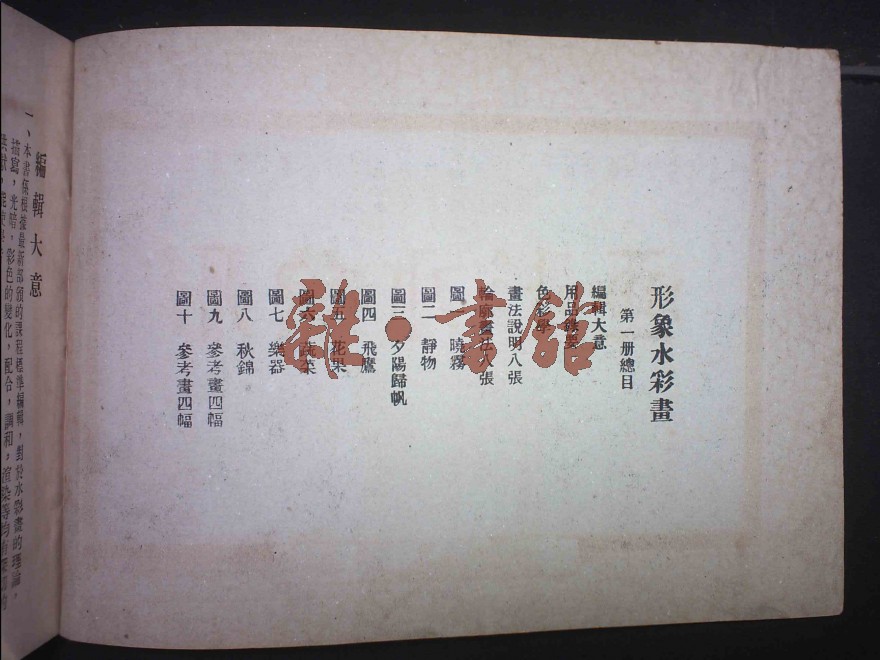 形象水彩畫
第一册總目
編輯大意
用品
色彩學
畫法說明八張
輪廓畫法八張
圖一 曉霧
圖二 靜物
圖三 夕陽歸帆
圖四 飛鷹
圖五 花果
圖六 蔬菜
圖七 樂器
圖八 秋錦
圖九 參考畫四幅
圖十 參考畫四幅
雜·書館
編輯大意
一、本書係根據最新部頒的課程標準編輯，對於水彩畫的理論，
描寫，光暗，彩色的變化，配合，調和，渲染等